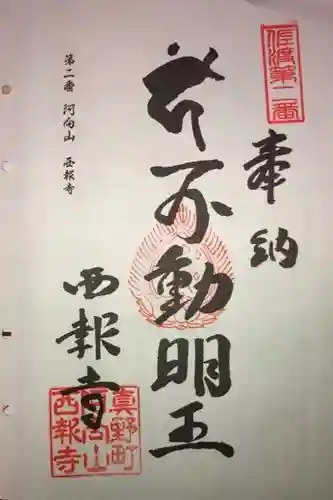 佐渡第二番
奉納
不動明王
西報寺
第二番 阿向山 西報寺
真野町
阿向山
西報寺